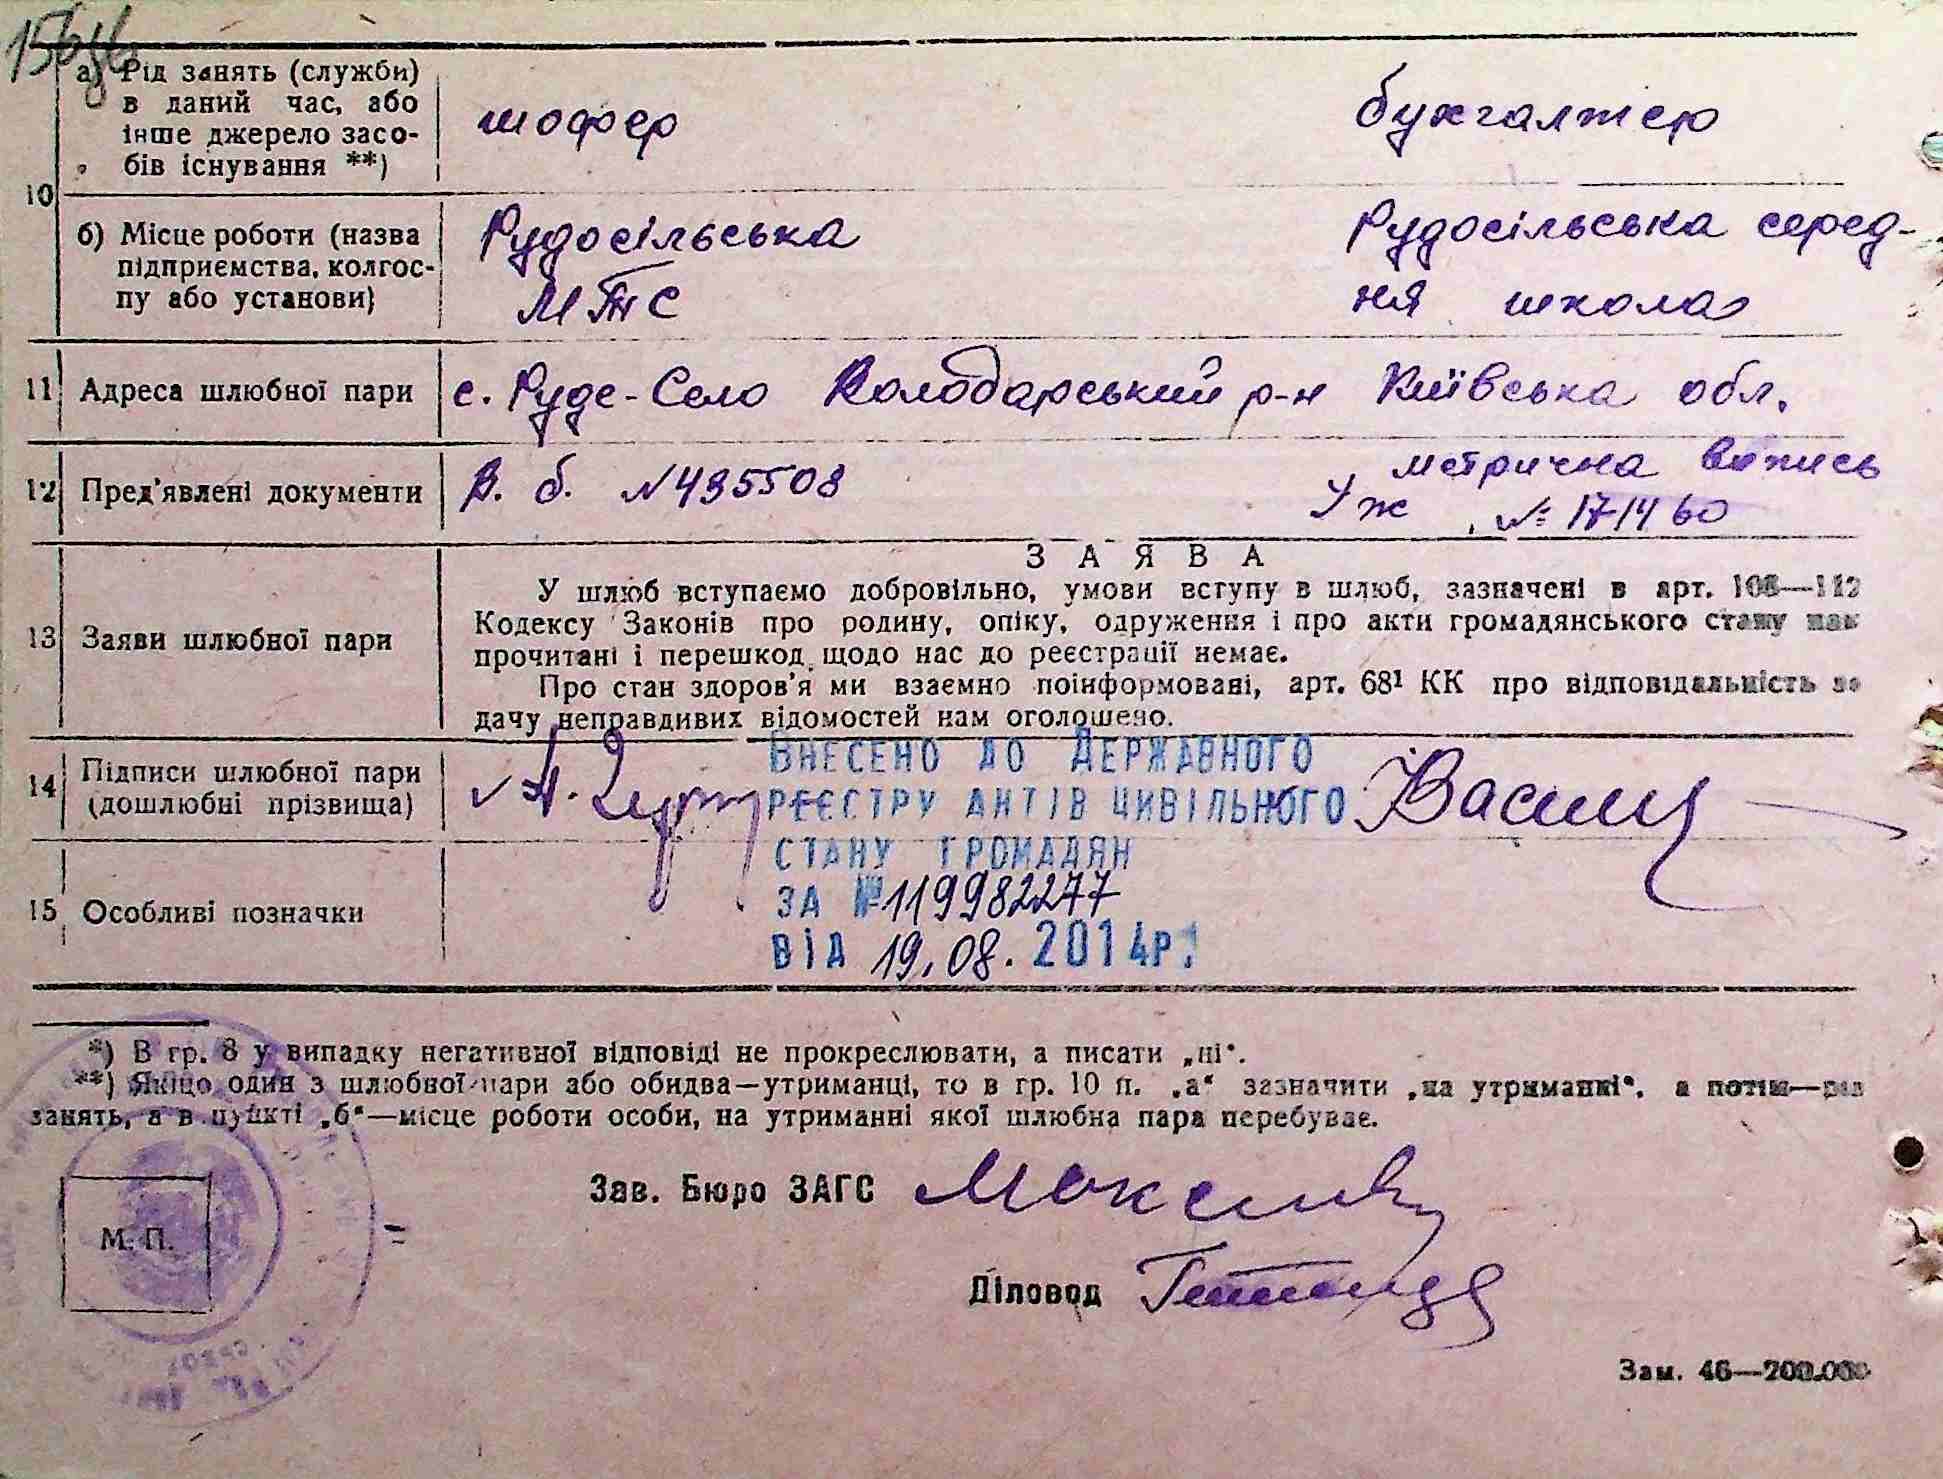 10
а) Рід занять (служби)
в даний час, або
інше джерело засо-
бів існування **)
шофер
бухгалтер
б) Місце роботи (назва
підприємства, колгос-
пу або установи)
Рудосільська
МТС
Рудосільська серед-
ня школа
11 Адреса шлюбної пари
с. Руде-Село Володарський р-н Київська обл.
12 Пред'явлені документи
В. б. №435508
метрична
№ 171460
13 Заяви шлюбної пари
ЗАЯВА
У шлюб вступаємо добровільно, умови вступу в шлюб, зазначені в арт. 108—112
Кодексу Законів про родину, опіку, одруження і про акти громадянського стану нам
прочитані і перешкод щодо нас до реєстрації немає.
Про стан здоров'я ми взаємно поінформовані, арт. 68¹ КК про відповідальність за
дачу неправдивих відомостей нам оголошено.
14 Підписи шлюбної пари
(дошлюбні прізвища)
ВНЕСЕНО ДО ДЕРЖАВНОГО
РЕЄСТРУ АКТІВ ЦИВІЛЬНОГО
СТАНУ ГРОМАДЯН
ЗА №119982277
ВІД 19.08.2014р.
15 Особливі позначки
*) В гр. 8 у випадку негативної відповіді не прокреслювати, а писати „ні“.
**) Якщо один з шлюбної пари або обидва—утриманці, то в гр. 10 п. „а“ зазначити „на утриманні“, а потім—рід
занять, а в пункті „б“—місце роботи особи, на утриманні якої шлюбна пара перебуває.
М. П.
Зав. Бюро ЗАГС
Діловод
Зам. 46—200.000